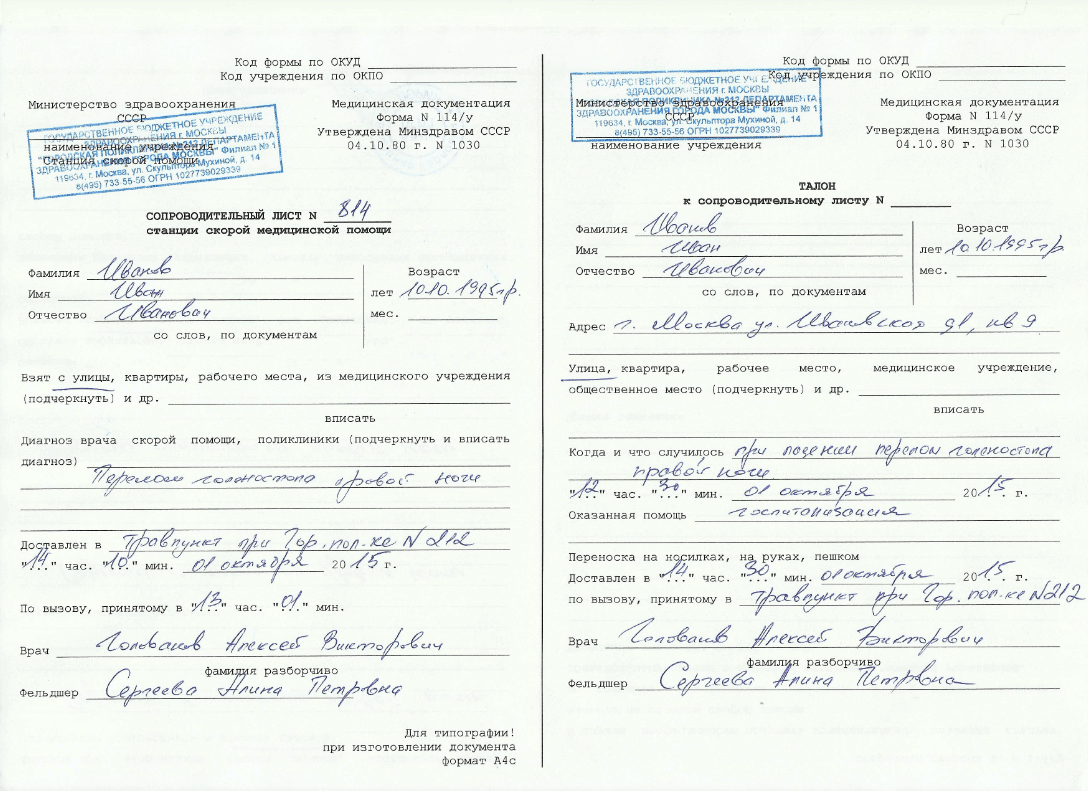 Код формы по ОКУД
Код учреждения по ОКПО
Министерство здравоохранения
СССР
наименование учреждения
Станция скорой помощи
ГОСУДАРСТВЕННОЕ БЮДЖЕТНОЕ УЧРЕЖДЕНИЕ
ЗДРАВООХРАНЕНИЯ г. МОСКВЫ
"ГОРОДСКАЯ ПОЛИКЛИНИКА №212 ДЕПАРТАМЕНТА
ЗДРАВООХРАНЕНИЯ ГОРОДА МОСКВЫ" Филиал № 1
119634, г. Москва, ул. Скульптора Мухиной, д. 14
8(495) 733-55-56 ОГРН 1027739029339
Медицинская документация
Форма N 114/у
Утверждена Минздравом СССР
04.10.80 г. N 1030
СОПРОВОДИТЕЛЬНЫЙ ЛИСТ N 814
станции скорой медицинской помощи
Фамилия Иванов
Имя Иван
Отчество Иванович
со слов, по документам
Возраст
лет 10.10.1995г.р.
мес.
Взят с улицы, квартиры, рабочего места, из медицинского учреждения
(подчеркнуть) и др.
вписать
Диагноз врача скорой помощи, поликлиники (подчеркнуть и вписать
диагноз)
Перелом голеностопа правой ноги
Доставлен в Травпункт при Гор. пол-ке N 212
"14" час. "10" мин. 01 октября 2015 г.
По вызову, принятому в "13" час. "01" мин.
Врач Голованов Алексей Викторович
фамилия разборчиво
Фельдшер Сергеева Алина Петровна
Для типографии!
при изготовлении документа
формат А4с
Код формы по ОКУД
Код учреждения по ОКПО
Министерство здравоохранения
СССР
наименование учреждения
ГОСУДАРСТВЕННОЕ БЮДЖЕТНОЕ УЧРЕЖДЕНИЕ
ЗДРАВООХРАНЕНИЯ г. МОСКВЫ
"ГОРОДСКАЯ ПОЛИКЛИНИКА №212 ДЕПАРТАМЕНТА
ЗДРАВООХРАНЕНИЯ ГОРОДА МОСКВЫ" Филиал № 1
119634, г. Москва, ул. Скульптора Мухиной, д. 14
8(495) 733-55-56 ОГРН 1027739029339
Медицинская документация
Форма N 114/у
Утверждена Минздравом СССР
04.10.80 г. N 1030
ТАЛОН
к сопроводительному листу N
Фамилия Иванов
Имя Иван
Отчество Иванович
со слов, по документам
Возраст
лет 10.10.1995г/р
мес.
Адрес г. Москва ул. Ивановская д1, кв 9
Улица, квартира, рабочее место, медицинское учреждение,
общественное место (подчеркнуть) и др.
вписать
Когда и что случилось при падении перелом голеностопа
правой ноги
"12" час. "30" мин. 01 октября 2015 г.
Оказанная помощь госпитализация
Переноска на носилках, на руках, пешком
Доставлен в "14" час. "30" мин. 01 октября 2015 г.
по вызову, принятому в Травпункт при Гор. пол-ке N212
Врач Голованов Алексей Викторович
фамилия разборчиво
Фельдшер Сергеева Алина Петровна